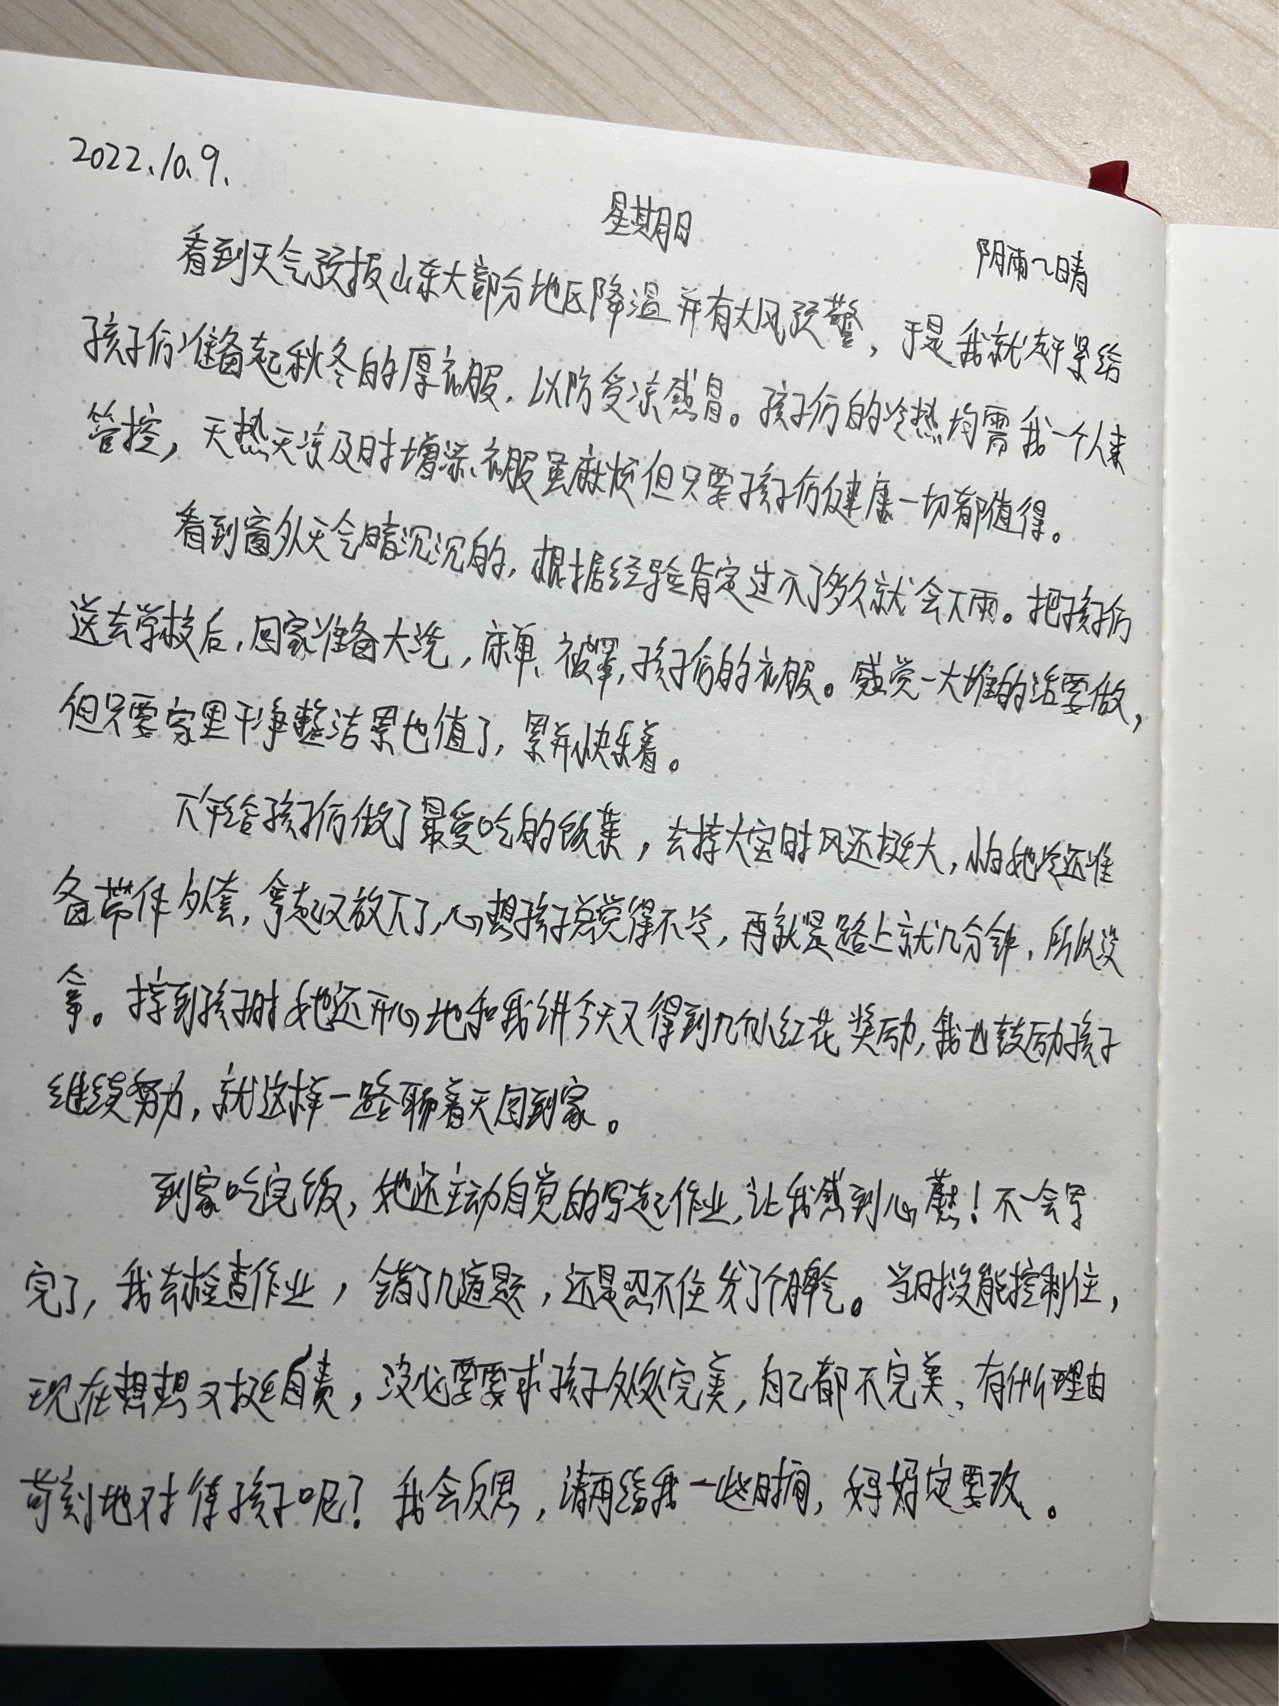 2022.10.9.
星期日
阴雨~晴
看到天气预报山东大部分地区降温并有大风预警，于是我就赶紧给
孩子们准备起秋冬的厚衣服，以防受凉感冒。孩子们的冷热均需我一个人来
管控，天热天凉及时增添衣服虽麻烦但只要孩子们健康一切都值得。
看到窗外天气暗沉沉的，根据经验肯定过不了多久就会下雨。把孩子们
送去学校后，回家准备大洗，床单、被罩，孩子们的衣服。感觉一大堆的活要做，
但只要家里干净整洁累也值了，累并快乐着。
下午给孩子们做了最爱吃的饭菜，去接大宝时风还挺大，怕她冷还准
备带件外套，拿起又放下了，心想孩子总觉得不冷，再就是路上就几分钟，所以没
拿。接到孩子时她还开心地和我讲今天又得到几个小红花奖励，我也鼓励孩子
继续努力，就这样一路聊着天回到家。
到家吃完饭，她还主动自觉的写起作业，让我感到心慰！不一会写
完了，我去检查作业，错了几道题，还是忍不住发了个脾气。当时没能控制住，
现在想想又挺自责，没必要要求孩子处处完美，自己都不完美，有什么理由
苛刻地对待孩子呢？我会反思，请再给我一些时间，妈妈定要改。